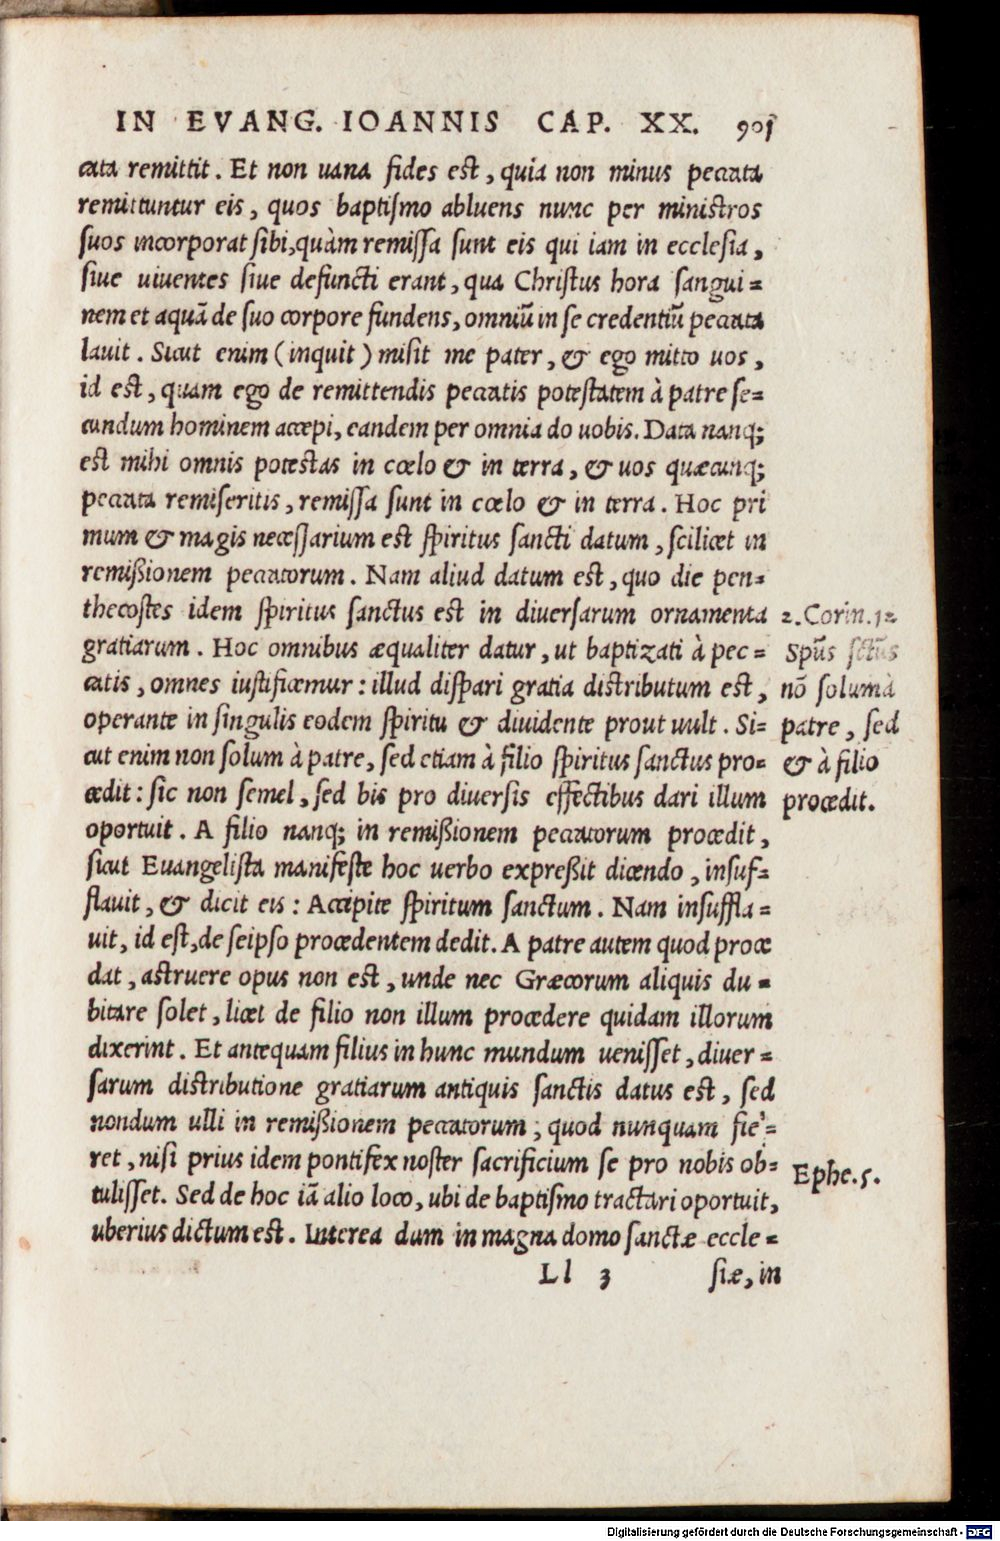 IN EVANG. IOANNIS CAP. XX. 901
cata remittit. Et non uana fides est, quia non minus peccata
remittuntur eis, quos baptiſmo abluens nunc per miniſtros
ſuos incorporat ſibi, quàm remiſſa ſunt eis qui iam in eccleſia,
ſiue uiuentes ſiue defuncti erant, qua Chriſtus hora ſangui=
nem et aquã de ſuo corpore fundens, omniũ in ſe credentiũ peccata
lauit. Sicut enim (inquit) miſit me pater, & ego mitto uos,
id est, quam ego de remittendis peccatis poteſtatem à patre ſe=
cundum hominem accepi, eandem per omnia do uobis. Data nanq;
est mihi omnis potestas in cœlo & in terra, & uos quæcunq;
peccata remiſeritis, remiſſa ſunt in cœlo & in terra. Hoc pri
mum & magis neceſſarium est ſpiritus ſancti datum, ſcilicet in
remißionem peccatorum. Nam aliud datum est, quo die pen=
thecoſtes idem ſpiritus ſanctus est in diuerſarum ornamenta
gratiarum. Hoc omnibus æqualiter datur, ut baptizati à pec=
catis, omnes iuſtificemur: illud diſpari gratia diſtributum est,
operante in ſingulis eodem ſpiritu & diuidente prout uult. Si=
cut enim non ſolum à patre, ſed etiam à filio ſpiritus ſanctus pro=
cedit: ſic non ſemel, ſed bis pro diuerſis effectibus dari illum
oportuit. A filio nanq; in remißionem peccatorum procedit,
ſicut Euangeliſta manifeſte hoc uerbo expreßit dicendo, inſuf=
flauit, & dicit eis: Accipite ſpiritum ſanctum. Nam inſuffla=
uit, id est, de ſeipſo procedentem dedit. A patre autem quod proce
dat, aſtruere opus non est, unde nec Græcorum aliquis du=
bitare ſolet, licet de filio non illum procedere quidam illorum
dixerint. Et antequam filius in hunc mundum ueniſſet, diuer=
ſarum diſtributione gratiarum antiquis ſanctis datus est, ſed
nondum ulli in remißionem peccatorum, quod nunquam fie=
ret, niſi prius idem pontifex noſter ſacrificium ſe pro nobis ob=
tuliſſet. Sed de hoc iã alio loco, ubi de baptiſmo tractari oportuit,
uberius dictum est. Interea dum in magna domo ſanctæ eccle=
Ll 3 ſiæ, in
2. Corin. 12
Spũs ſctũs
nõ ſolum à
patre, ſed
& à filio
procedit.
Ephe. 5.
Digitalisierung gefördert durch die Deutsche Forschungsgemeinschaft - DFG